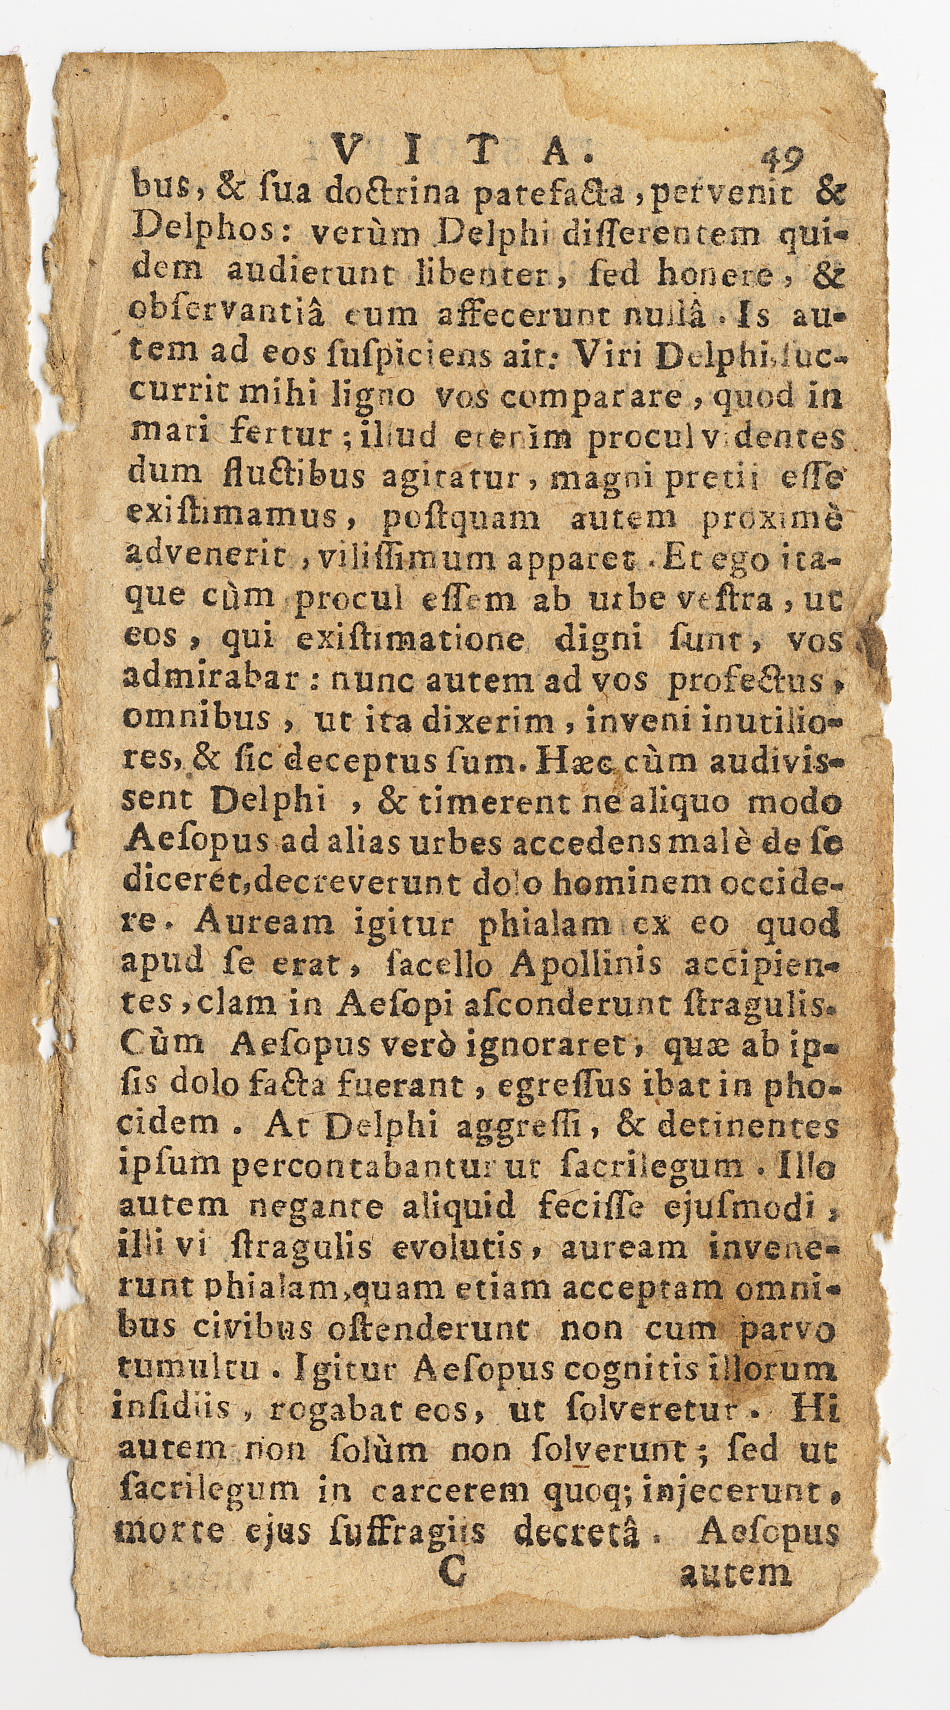 VITA. 49
bus, & ſua doctrina patefacta, pervenit &
Delphos: verùm Delphi diſſerentem qui-
dem audierunt libenter, ſed honere, &
obſervantiâ eum affecerunt nullâ. Is au-
tem ad eos ſuſpiciens ait: Viri Delphi, ſuc-
currit mihi ligno vos comparare, quod in
mari fertur; illud etenim procul videntes
dum fluctibus agitatur, magni pretii eſſe
exiſtimamus, poſtquam autem proximè
advenerit, viliſſimum apparet. Et ego ita-
que cùm procul eſſem ab urbe veſtra, ut
eos, qui exiſtimatione digni ſunt, vos
admirabar: nunc autem ad vos profectus,
omnibus, ut ita dixerim, inveni inutilio-
res, & ſic deceptus ſum. Hæc cùm audivis-
sent Delphi, & timerent ne aliquo modo
Aeſopus ad alias urbes accedens malè de ſe
diceret, decreverunt dolo hominem occide-
re. Auream igitur phialam ex eo quod
apud ſe erat, ſacello Apollinis accipien-
tes, clam in Aeſopi aſconderunt ſtragulis.
Cùm Aeſopus verò ignoraret, quæ ab ip-
ſis dolo facta fuerant, egreſſus ibat in pho-
cidem. At Delphi aggreſſi, & detinentes
ipſum percontabantur ut ſacrilegum. Illo
autem negante aliquid feciſſe ejuſmodi,
illi vi ſtragulis evolutis, auream invene-
runt phialam, quam etiam acceptam omni-
bus civibus oſtenderunt non cum parvo
tumultu. Igitur Aeſopus cognitis illorum
inſidiis, rogabat eos, ut ſolveretur. Hi
autem non ſolùm non ſolverunt; ſed ut
ſacrilegum in carcerem quoq; injecerunt,
morte ejus ſuffragiis decretâ. Aeſopus
C autem